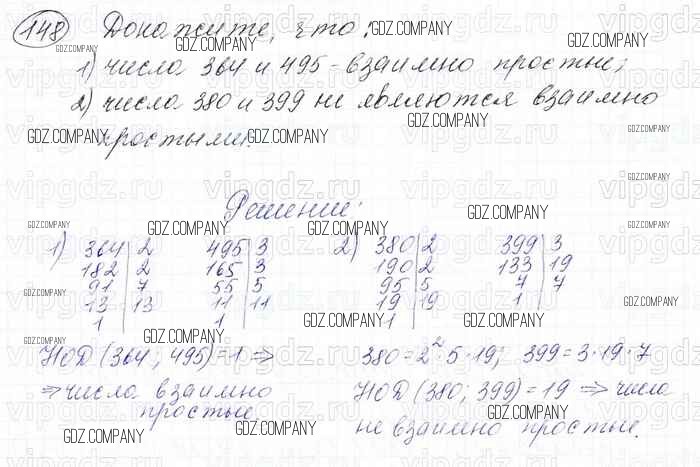 148 Докажите, что:
1) числа 364 и 495 - взаимно простые;
2) числа 380 и 399 не являются взаимно
простыми.
Решение:
1) 364 | 2 495 | 3 2) 380 | 2 399 | 3
182 | 2 165 | 3 190 | 2 133 | 19
91 | 7 55 | 5 95 | 5 7 | 7
13 | 13 11 | 11 19 | 19 1
1 1 1
НОД (364; 495) = 1 ⇒ 380 = 2² · 5 · 19; 399 = 3 · 19 · 7
⇒ числа взаимно НОД (380; 399) = 19 ⇒ числа
простые. не взаимно простые.